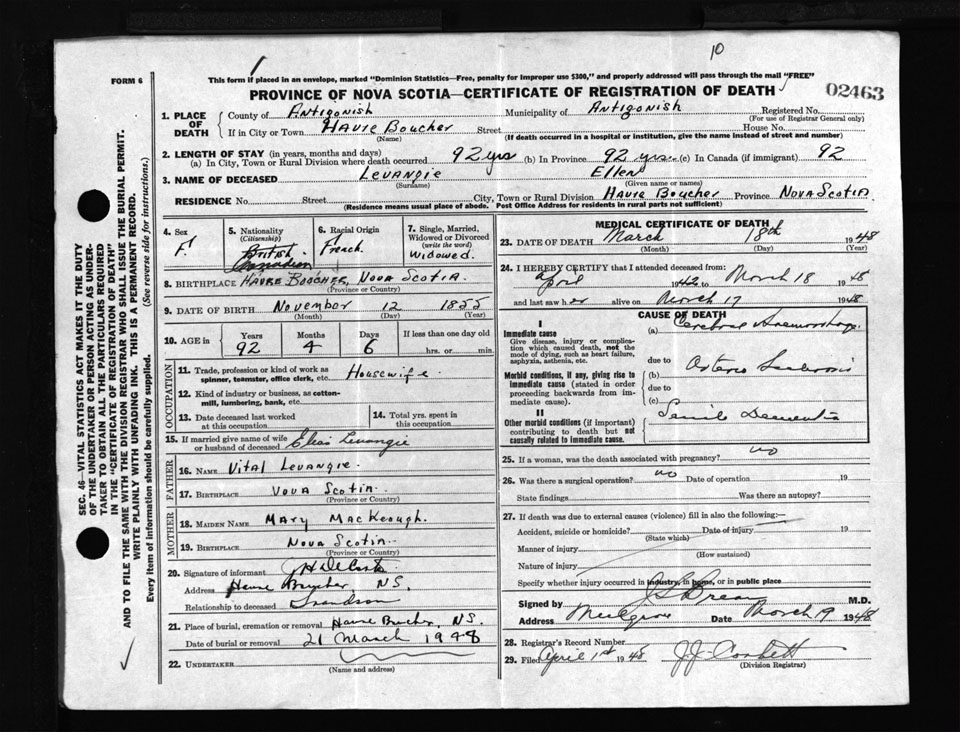 10
FORM 6
This form if placed in an envelope, marked "Dominion Statistics—Free, penalty for improper use $300," and properly addressed will pass through the mail "FREE"
PROVINCE OF NOVA SCOTIA—CERTIFICATE OF REGISTRATION OF DEATH
02463
1. PLACE OF DEATH County of Antigonish Municipality of Antigonish Registered No.
(For use of Registrar General only)
If in City or Town Havre Boucher Street House No.
(Name) (If death occurred in a hospital or institution, give the name instead of street and number)
2. LENGTH OF STAY (in years, months and days)
(a) In City, Town or Rural Division where death occurred 92 yrs (b) In Province 92 yrs. (c) In Canada (if immigrant) 92
3. NAME OF DECEASED Levangie Ellen
(Surname) (Given name or names)
RESIDENCE No. Street City, Town or Rural Division Havre Boucher Province Nova Scotia
(Residence means usual place of abode. Post Office Address for residents in rural parts not sufficient)
4. Sex F.
5. Nationality (Citizenship) British Canadian
6. Racial Origin French.
7. Single, Married, Widowed or Divorced (write the word) Widowed.
8. BIRTHPLACE Havre Boucher, Nova Scotia.
(Province or Country)
9. DATE OF BIRTH November 12 1855
(Month) (Day) (Year)
10. AGE in Years Months Days If less than one day old
92 4 6 hrs. or min.
OCCUPATION
11. Trade, profession or kind of work as spinner, teamster, office clerk, etc. Housewife.
12. Kind of industry or business, as cotton-mill, lumbering, bank, etc.
13. Date deceased last worked at this occupation
14. Total yrs. spent in this occupation
15. If married give name of wife or husband of deceased Elias Levangie
FATHER
16. NAME Vital Levangie.
17. BIRTHPLACE Nova Scotia.
(Province or Country)
MOTHER
18. MAIDEN NAME Mary MacKeough.
19. BIRTHPLACE Nova Scotia.
(Province or Country)
20. Signature of informant
Address Havre Boucher N.S.
Relationship to deceased Grandson
21. Place of burial, cremation or removal Havre Boucher, N.S.
Date of burial or removal 21 March 1948
22. UNDERTAKER
(Name and address)
MEDICAL CERTIFICATE OF DEATH
23. DATE OF DEATH March 18th 1948
(Month) (Day) (Year)
24. I HEREBY CERTIFY that I attended deceased from:
April 19 to March 18 1948
and last saw her alive on March 17 1948
CAUSE OF DEATH
I
Immediate cause
Give disease, injury or complication which caused death, not the mode of dying, such as heart failure, asphyxia, asthenia, etc.
(a) Cerebral Haemorrhage
due to
Morbid conditions, if any, giving rise to immediate cause (stated in order proceeding backwards from immediate cause).
(b) Arterio Sclerosis
due to
(c)
II
Other morbid conditions (if important) contributing to death but not causally related to immediate cause.
Senile Dementia
25. If a woman, was the death associated with pregnancy? no
26. Was there a surgical operation? no Date of operation 19
State findings Was there an autopsy?
27. If death was due to external causes (violence) fill in also the following:
Accident, suicide or homicide? Date of injury 19
(State which)
Manner of injury
(How sustained)
Nature of injury
Specify whether injury occurred in industry, in home, or in public place
Signed by M.D.
Address Mulgrave Date March 19 1948
28. Registrar's Record Number
29. Filed April 1st 1948 J.J. Corbett
(Division Registrar)
SEC. 46—VITAL STATISTICS ACT MAKES IT THE DUTY
OF THE UNDERTAKER OR PERSON ACTING AS UNDER-
TAKER TO OBTAIN ALL THE PARTICULARS REQUIRED
IN THE "CERTIFICATE OF REGISTRATION OF DEATH"
AND TO FILE THE SAME WITH THE DIVISION REGISTRAR WHO SHALL ISSUE THE BURIAL PERMIT.
WRITE PLAINLY WITH UNFADING INK. THIS IS A PERMANENT RECORD.
Every item of information should be carefully supplied. (See reverse side for instructions.)